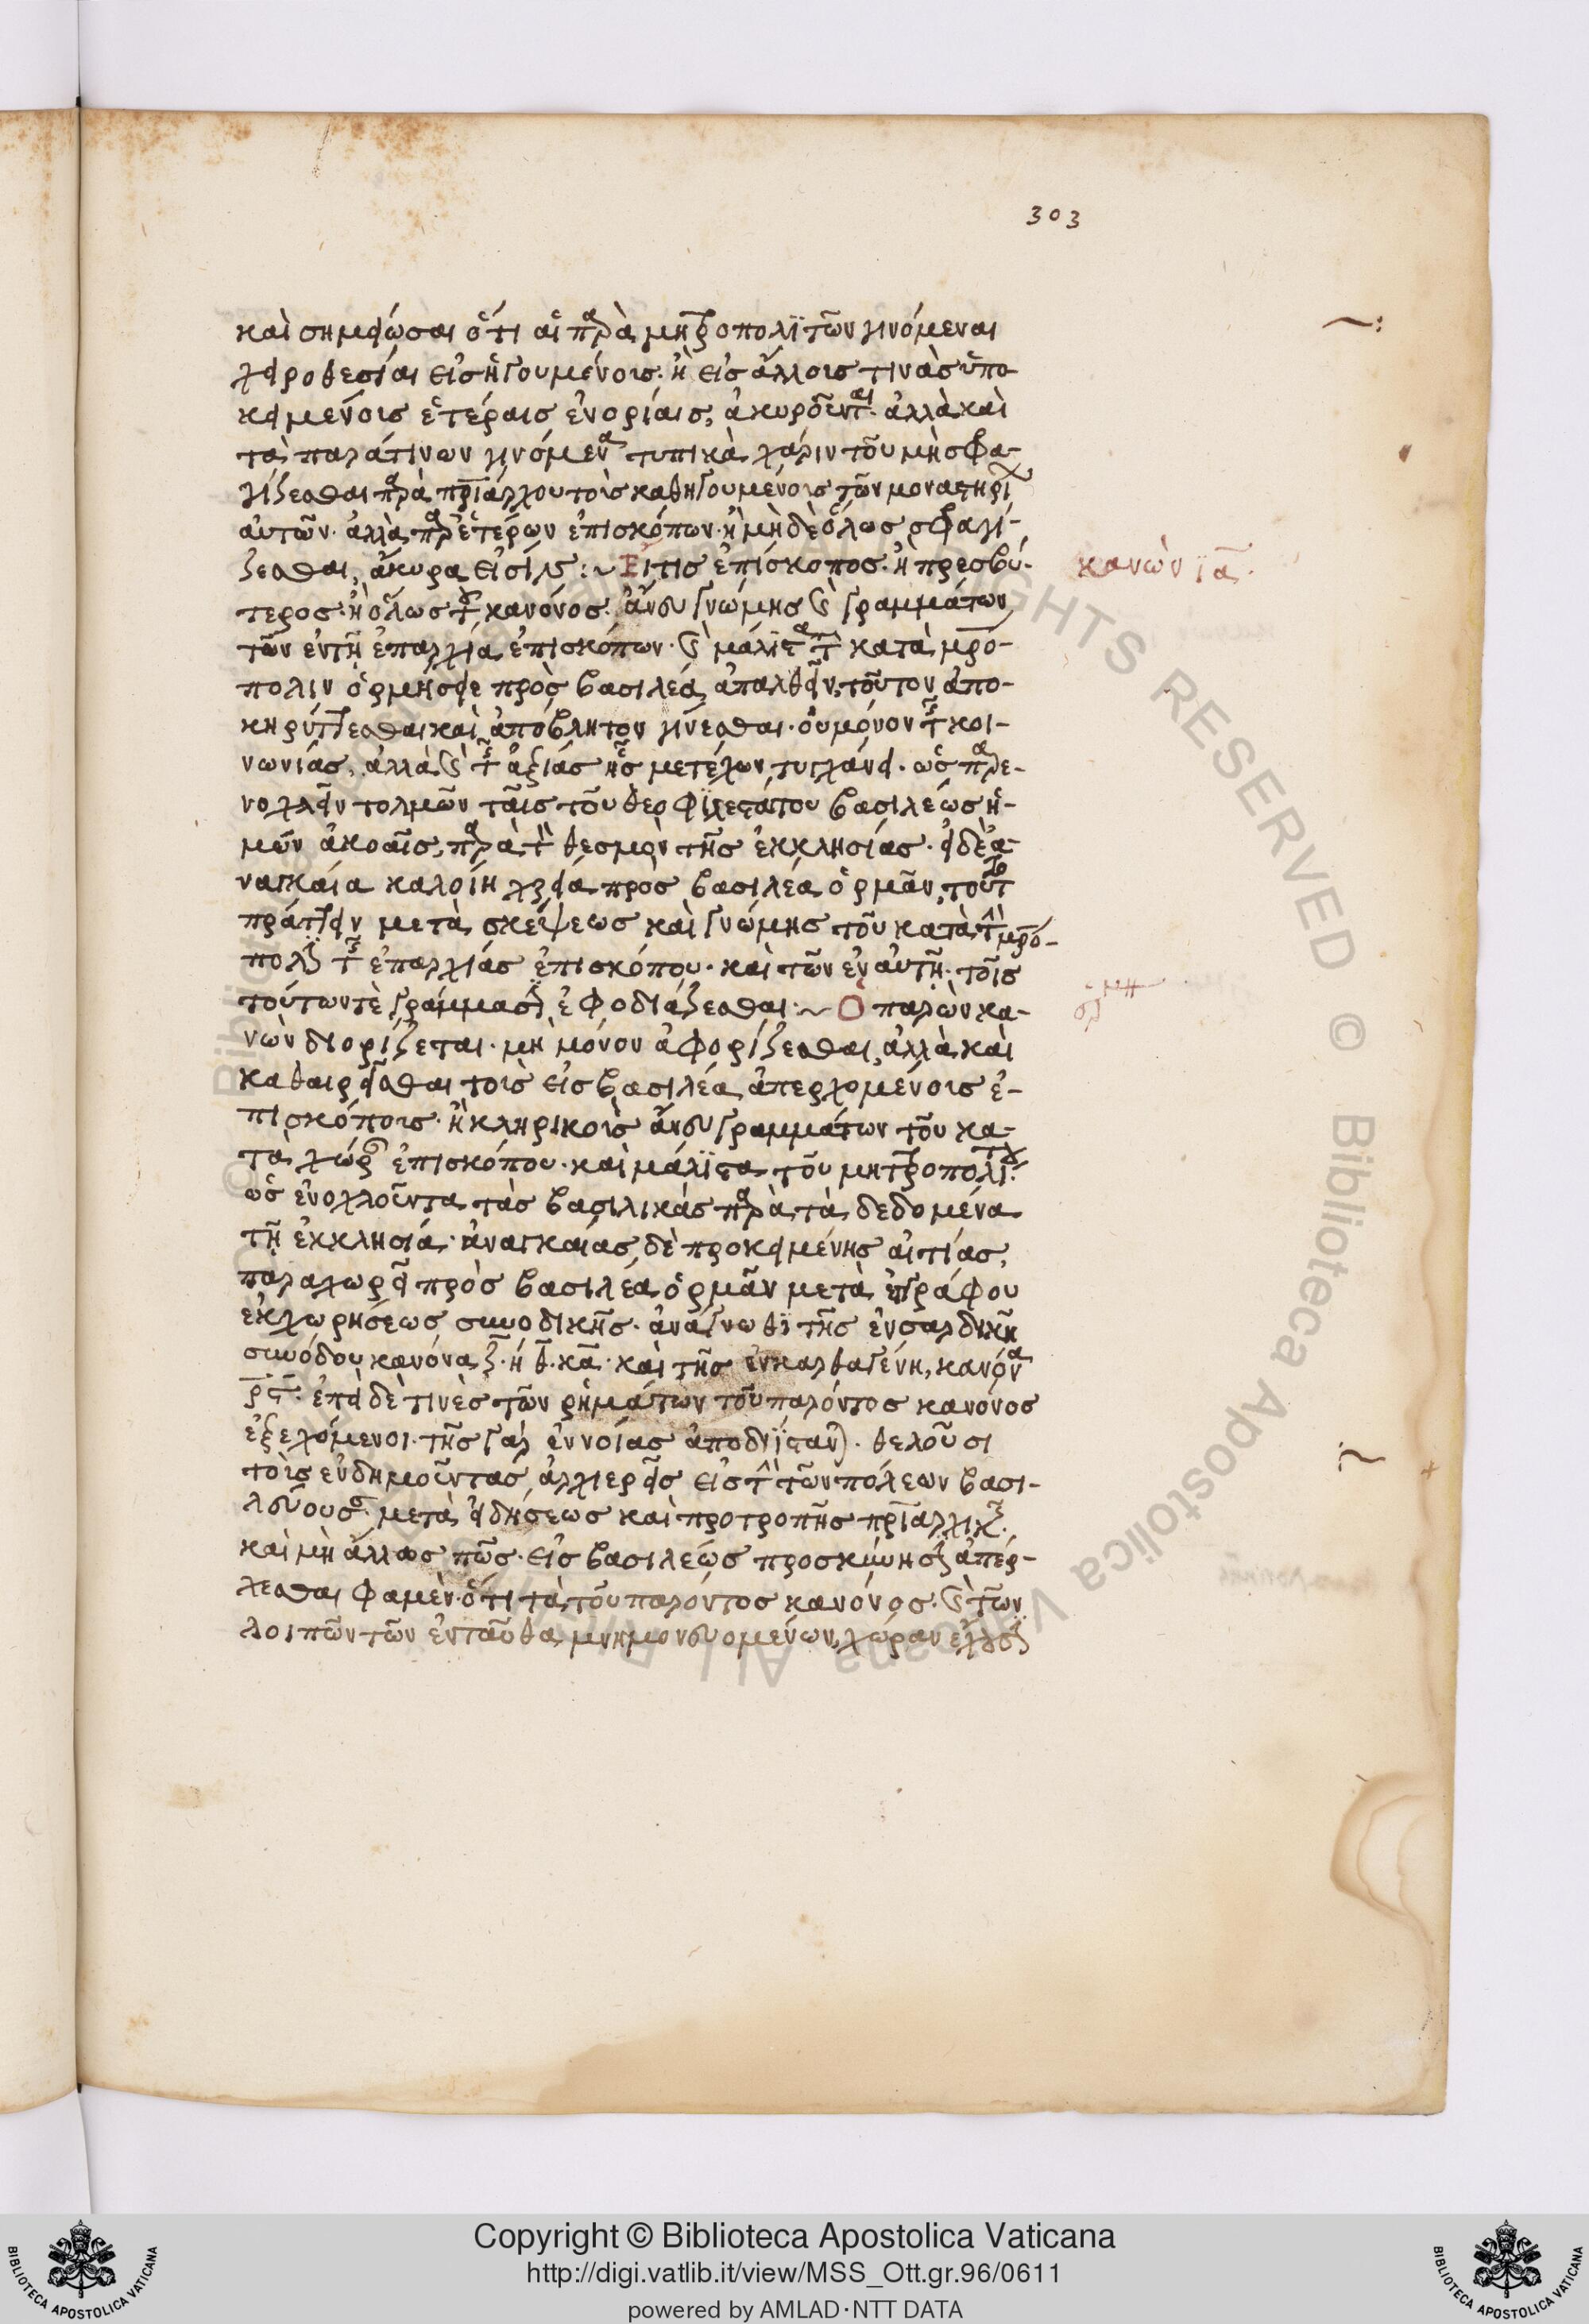 303
καὶ σημείωσαι ὅτι αἱ παρὰ μητροπολιτῶν γινόμεναι
χειροθεσίαι εἰς ἡγουμένοις· ἢ εἰς ἄλλοις τινὰς ὑπο-
κειμένοις ἑτέραις ἐνορίαις, ἀκυροῦνται· ἀλλὰ καὶ
τὰ παρά τινων γινόμενα τυπικὰ χάριν τοῦ μὴ σφρα-
γίζεσθαι παρὰ πριάρχου τοὶς καθηγουμένοις τῶν μοναστηρίων
αὐτῶν· ἀλλὰ παρ ἑτέρων ἐπισκόπων· ἢ μὴ δὲ ὅλως σφραγί-
ζεσθαι, ἄκυρα εἰσίν :~ Εἴ τις ἐπίσκοπος· ἢ πρεσβύ-
κανὼν ια
τερος· ἢ ὅλως τοῦ κανόνος· ἄνευ γνώμης καὶ γραμμάτων
τῶν ἐν τῇ ἐπαρχία ἐπισκόπων· καὶ μάλιστα τοῦ κατὰ μρό-
πολιν ὁρμήσειε πρὸς βασιλέα ἀπελθεῖν, τοῦτον ἀπο-
κηρύττεσθαι καὶ ἀπόβλητον γίνεσθαι· οὐ μόνον τῆς κοι-
νωνίας, ἀλλὰ καὶ τῆς ἀξίας ἧς μετέχων τυγχάνει· ὡς παρε-
νοχλεῖν τολμῶν ταῖς τοῦ θεοφιλεστάτου βασιλέως ἡ-
μῶν ἀκοαῖς, παρὰ τὸν θεσμὸν τῆς ἐκκλησίας· εἰ δὲ ἀ-
ναγκαία καλοίη χρεία πρὸς βασιλέα ὁρμᾶν, τοῦτο
πράττειν μετὰ σκέψεως καὶ γνώμης τοῦ κατὰ τὴν μρό-
πολιν τῆς ἐπαρχίας ἐπισκόπου· καὶ τῶν ἐν αὐτῇ· τοῖς
τούτων τὲ γράμμασιν ἐφοδιάζεσθαι :~ Ὁ παρὼν κα-
νὼν διορίζεται· μὴ μόνον ἀφορίζεσθαι, ἀλλὰ καὶ
καθαιρεῖσθαι τοὶς εἰς βασιλέα ἀπερχομένοις ἐ-
πισκόποις· ἢ κληρικοὶς ἄνευ γραμμάτων τοῦ κα-
τὰ χώραν ἐπισκόπου· καὶ μάλιστα τοῦ μητροπολίτου·
ὡς ἐνοχλοῦντα τὰς βασιλικὰς παρὰ τὰ δεδομένα
τῇ ἐκκλησία· ἀναγκαίας δὲ προκειμένης αἰτίας,
παραχωρεῖ πρὸς βασιλέα ὁρμᾶν μετὰ ἐγγράφου
ἐκχωρήσεως συνοδικῆς· ἀνάγνωθι τῆς ἐν σαρδικῆ
συνόδου κανόνα ζ· η θ· κα· καὶ τῆς ἐν καρθαγένη, κανόνα
ρς· ἐπεὶ δὲ τινὲς τῶν ῥημάτων τοῦ παρόντος κανόνος
ἐξεχόμενοι· τῆς γὰρ ἐννοίας ἀποδιίστανται· θελοῦσι
τοὶς ἐνδημοῦντας ἀρχιερεῖς εἰς τὴν τῶν πόλεων βασι-
λεύουσαν· μετὰ εἰδήσεως καὶ προτροπῆς πριαρχικῆς·
καὶ μὴ ἄλλως πῶς· εἰς βασιλέως προσκύνησιν ἀπέρ-
χεσθαι φαμὲν· ὅτι τὰ τοῦ παρόντος κανόνος· καὶ τῶν
λοιπῶν τῶν ἐνταῦθα μνημονευομένων, χώραν ἔχουσιν
Copyright © Biblioteca Apostolica Vaticana
http://digi.vatlib.it/view/MSS_Ott.gr.96/0611
powered by AMLAD·NTT DATA